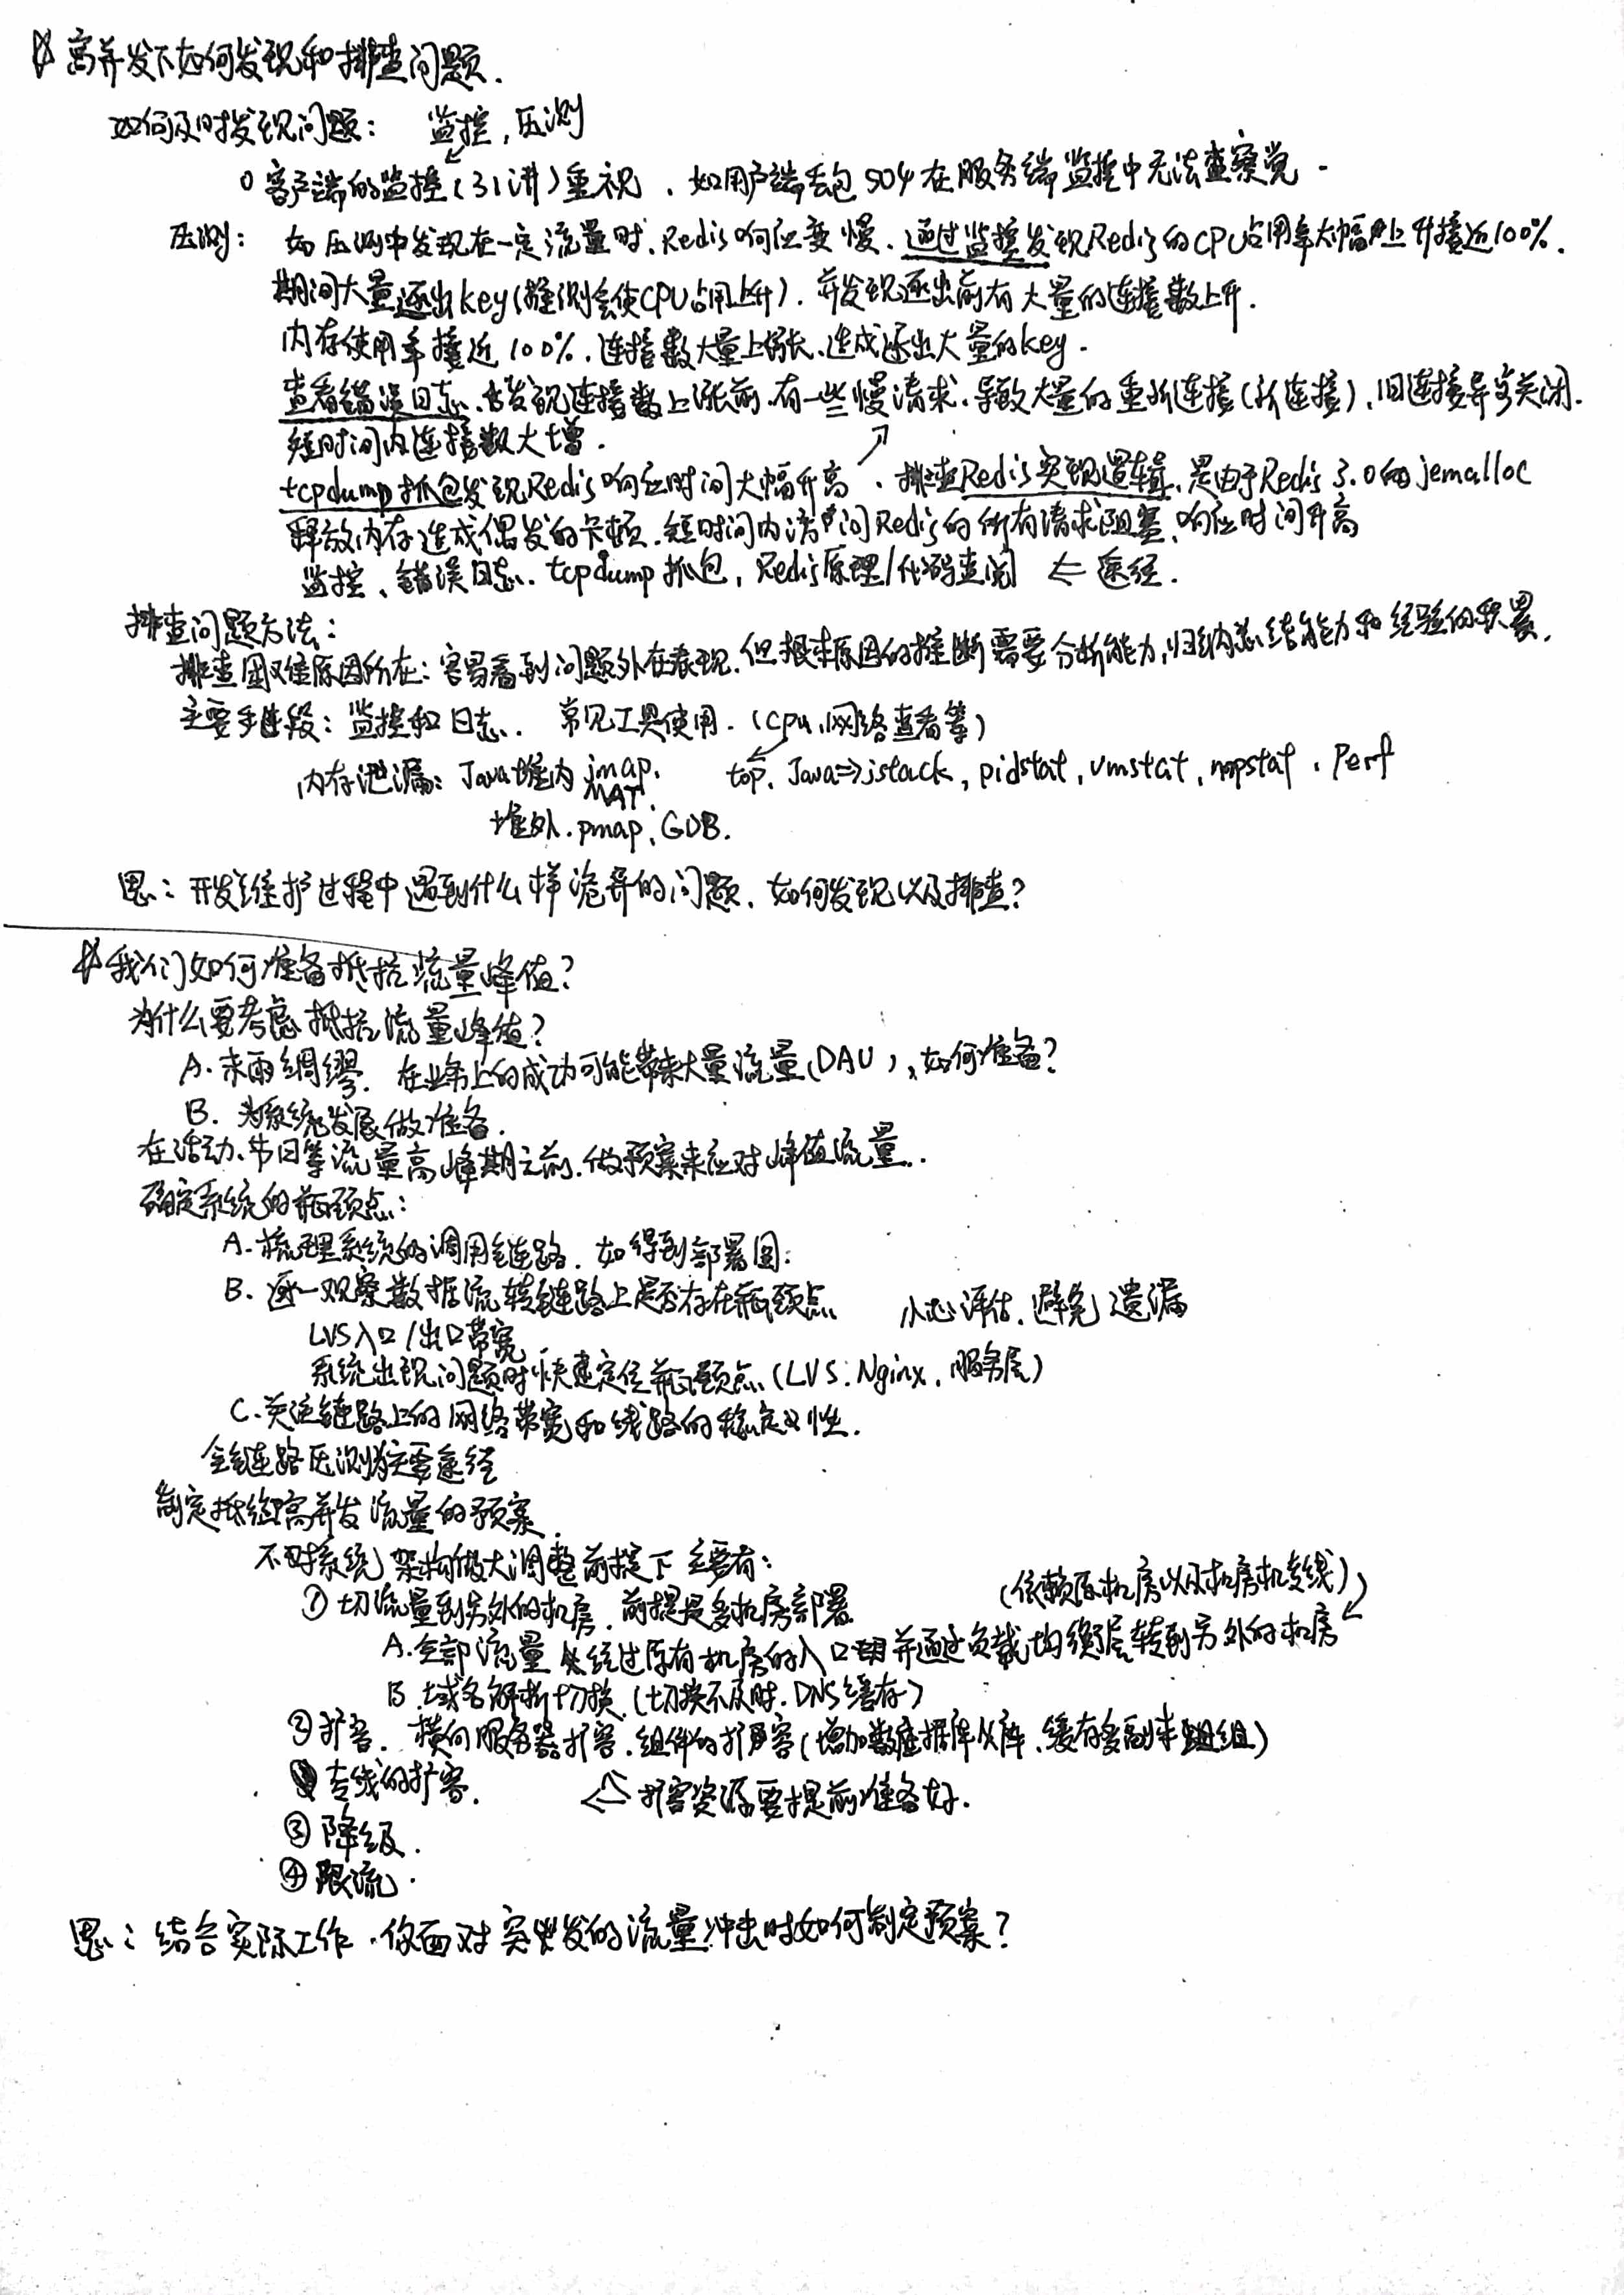 高并发下如何发现和排查问题.
如何及时发现问题: 监控,压测
客户端的监控(31讲)重视、如用户端丢包504在服务端监控中无法查察觉.
压测: 如压测中发现在一定流量时,Redis响应变慢、通过监控发现Redis的CPU占用率大幅上升接近100%.
期间大量逐出key(推测会使CPU占用上升). 并发现逐出前有大量的连接数上升.
内存使用率接近100%.连接数大量上涨、造成逐出大量的key.
查看错误日志、发现连接数上涨前有一些慢请求、导致大量的重新连接(新连接),旧连接异常关闭.
短时间内连接数大增.
tcpdump抓包发现Redis响应时间大幅升高、排查Redis实现逻辑、是由于Redis 3.0的jemalloc
释放内存造成偶发的卡顿.短时间内访问Redis的所有请求阻塞,响应时间升高
监控、错误日志、tcpdump抓包,Redis原理/代码查阅 ⇐ 途径.
排查问题方法:
排查困难原因所在:容易看到问题外在表现.但根本原因的推断需要分析能力,归纳总结能力和经验的积累.
主要手段: 监控和日志. 常见工具使用.(cpu,网络查看等)
内存泄漏: Java堆内 jmap. top, Java=>jstack, pidstat, vmstat, mpstat, Perf
MAT.
堆外.pmap, GDB.
思: 开发维护过程中遇到什么样诡异的问题,如何发现以及排查?
我们如何准备抵抗流量峰值?
为什么要考虑抵抗流量峰值?
A.未雨绸缪. 在业务上的成功可能带来大量流量(DAU),如何准备?
B. 为系统发展做准备.
在活动、节日等流量高峰期之前.做预案来应对峰值流量..
确定系统的瓶颈点:
A.梳理系统的调用链路. 如得到部署图:
B. 逐一观察数据流转链路上是否存在瓶颈点 小心评估.避免遗漏
LVS入口/出口带宽
系统出现问题时快速定位瓶颈点(LVS.Nginx,服务层)
C.关注链路上的网络带宽和线路的稳定性.
全链路压测为主要途径
制定抵御高并发流量的预案.
不对系统架构做大调整前提下主要有:
①切流量到另外的机房. 前提是多机房部署 (依赖原机房以及机房机专线)
A.全部流量从经过原有机房的入口并通过负载均衡层转到另外的机房
B.域名解析切换(切换不及时.DNS缓存)
②扩容. 横向服务器扩容.组件的扩容(增加数据库从库.缓存多副本组)
专线的扩容. ⇐ 扩容资源要提前准备好.
③降级.
④限流.
思: 结合实际工作,你面对突发的流量冲击时如何制定预案?